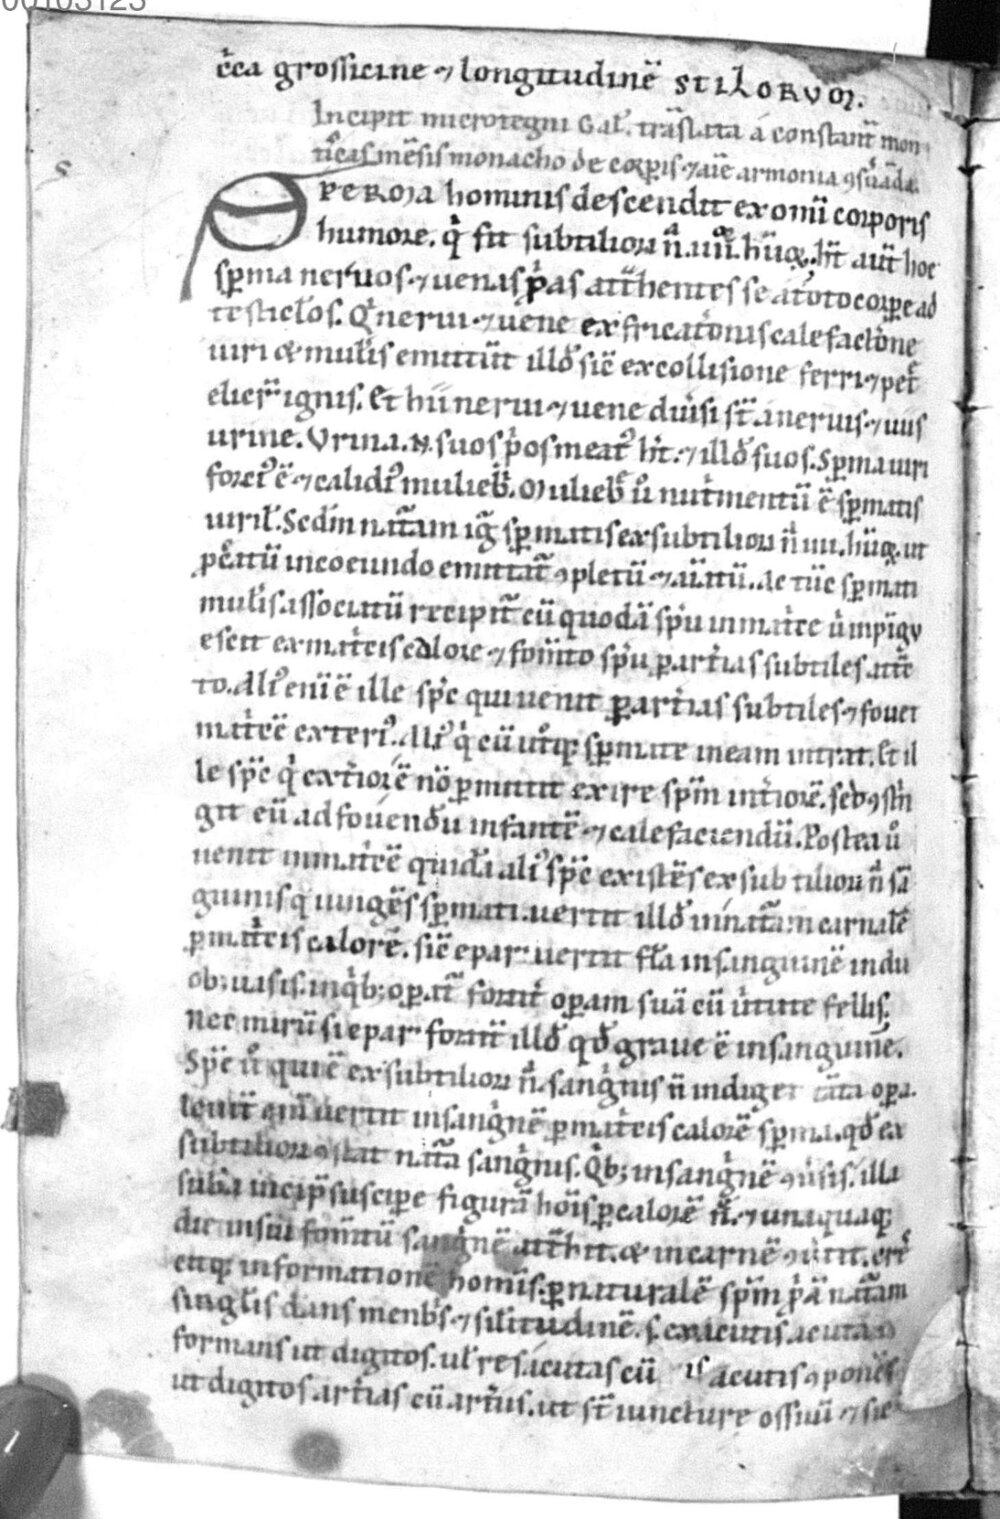 00103123
c̄ca grossicine ⁊ longitudinē STILORVM.
Incipit microtegni Gal̄. trāslata a constant̄ mon
ticas̄inēsis monacho de corp̄is ⁊ aīe armonia
SPERMA hominis descendit ex om̄i corporis
humore. q̄ fit subtiliori n̄. hoc
sp̄ma neruos ⁊ uenas p̄as att̄hentes se a toto corp̄e ad
testicl̄os. Q̄ nerui ⁊ uene ex fricatōnis calefactōne
uiri & mul̄is emittūt illd̄ sic̄ ex collisione ferri ⁊ pet̄
elicit̄ ignis. Et hii nerui ⁊ uene diuisi st̄ a neruis ⁊ uiis
urine. Vrina .N. suos p̄os meat᷒ h̄t. ⁊ illd̄ suos. Sp̄ma uiri
fort᷒ ē ⁊ calidi᷒ mulieb̄. Mulieb̄ u̾ nut̄mentū ē sp̄matis
uiril̄. Sedm̄ nat̄am iḡ sp̄matis ex subtiliori n̄ ut
in coeundo emittat̄ ꝯpletū ⁊ ac tūc sp̄mati
mul̄is associatū recipit̄ cū quodā sp̄u in mat̄ce
escit ex mat̄cis calore ⁊ fomīto sp̄u p̄ art̄ias subtiles att̄c
to. Ali᷒ enī ē ille sp̄c qui uenit p̄ art̄ias subtiles ⁊ fouet
mat̄cē exteri᷒. Ali᷒ q̄ cū ut̄q; sp̄mate in eam intrat. Et il
le sp̄c q̄ ext̄iorē nō p̄mittit exire sp̄m int̄iorē. sed ꝯst̄n
git eū ad fouendū infantē ⁊ calefaciendū. Postea u̾
uenit in mat̄cē quidā ali᷒ sp̄c existēs ex subtiliori n̄ sā
guinis q̄ iungēs sp̄mati. uertit illd̄ in nat̄am carnalē
p̄ mat̄cis calorē. sic̄ epar uertit fl̄a in sanguinē indu
ob; uasis. inq̄b; op̄at̄ fortit̄ op̄am suā cū u̾tute fellis.
Nec mirū si epar fortit̄ illd̄ qd̄ graue ē in sanguinē.
Sp̄c u̾ qui ē ex subtiliori n̄. sanḡnis n̄ indiget tāta op̄a.
leuit̄ qm̄ uertit in sanḡnē p̄ mat̄cis calorē sp̄ma. qd̄ ex
subtiliori ꝯstat nat̄a sanḡnis. Q̄b; in sanḡnē illa
sub̄a incip̄ suscipe figurā hōis p̄ calorē n̄. ⁊ unaquaq;
die in suū fomītū sanḡnē att̄hit. & in carnē ꝯu̾tit.
eitq; in formationē homīs. p̄ naturalē sp̄m p̄ā nat̄am
singl̄is dans menb̄s. ⁊ sil̄itudinē. s. ex acutis acuta
formans ut digitos. ul̄ res acutas cū is acutis ꝯponēs
ut digitos. art̄ias cū art̄us. ut st̄ iuncture ossiuū ⁊ sic